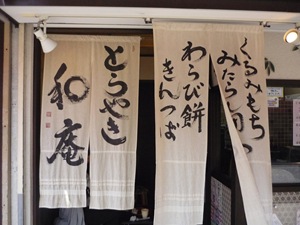 くるみもち
みたらし団子
わらび餅
きんつば
とらやき
和庵